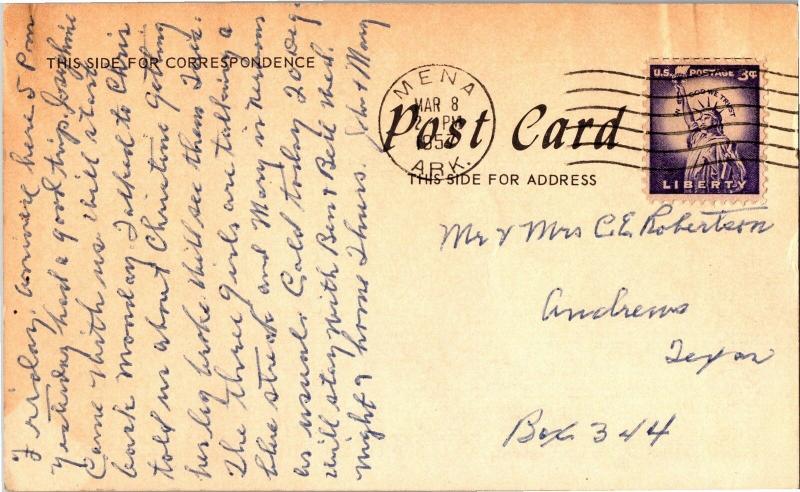 THIS SIDE FOR CORRESPONDENCE
Friday, arrived here 5 Pm
yesterday had a good trip, Josephine
came with us. Will start
back Monday. Talked to Chris
told us about Christine getting
her leg broke. Will see them Tues.
The three girls are talking a
blue streak and Mary is nervous
as usual. Cold today 20 deg.
will stay with Ben & Bell Wed.
night & home Thurs. John & Mary
MENA
MAR 8
PM
ARK.
U.S. POSTAGE 3¢
IN GOD WE TRUST
LIBERTY
Post Card
THIS SIDE FOR ADDRESS
Mr & Mrs C.E. Robertson
Andrews
Texas
Box 344